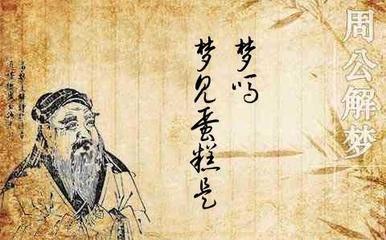 周公解梦
梦吗
梦见蛋糕是